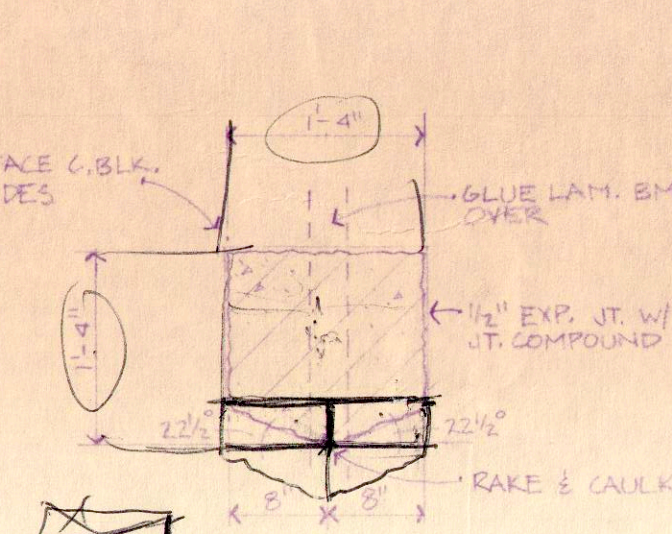 1'-4"
FACE C.BLK.
DES
GLUE LAM. BM
OVER
1'-4"
1/2" EXP. JT. W/
JT. COMPOUND
22 1/2°
22 1/2°
RAKE & CAULK
8"
8"